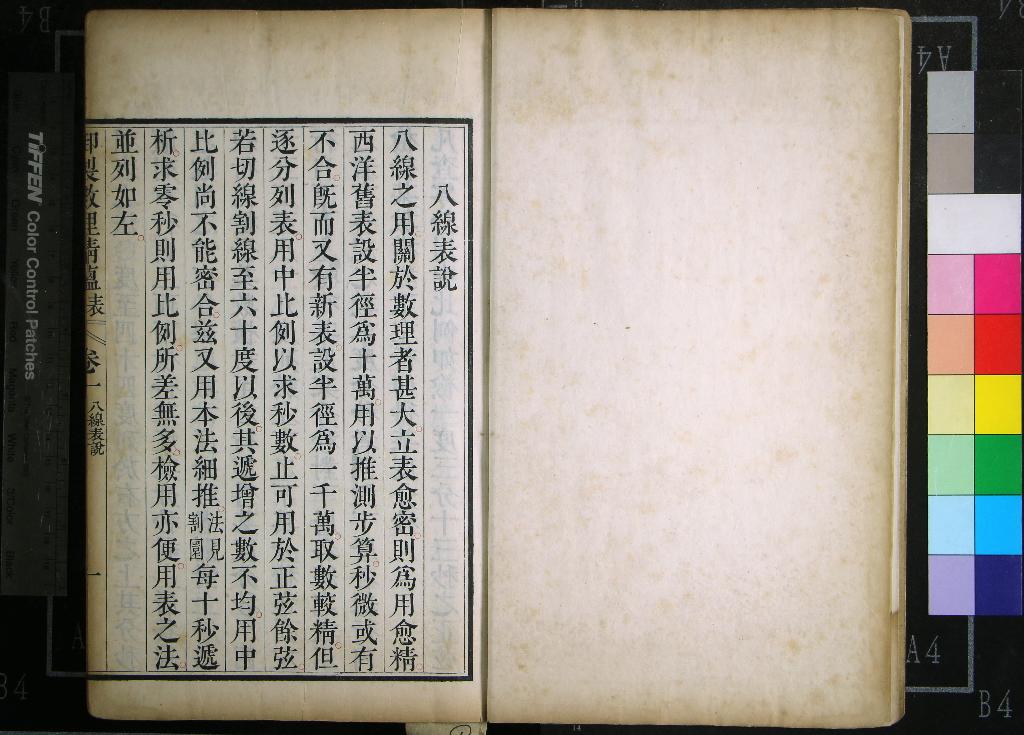 八線表說
八線之用關於數理者甚大立表愈密則爲用愈精
西洋舊表設半徑爲十萬用以推測步算秒微或有
不合旣而又有新表設半徑爲一千萬取數較精但
逐分列表用中比例以求秒數止可用於正弦餘弦
若切線割線至六十度以後其遞增之數不均用中
比例尚不能密合茲又用本法細推法見割圜每十秒遞
析求零秒則用比例所差無多檢用亦便用表之法
並列如左
御製數理精蘊表 卷一 八線表說 一
TIFFEN Color Control Patches
A4
B4
A4
B4